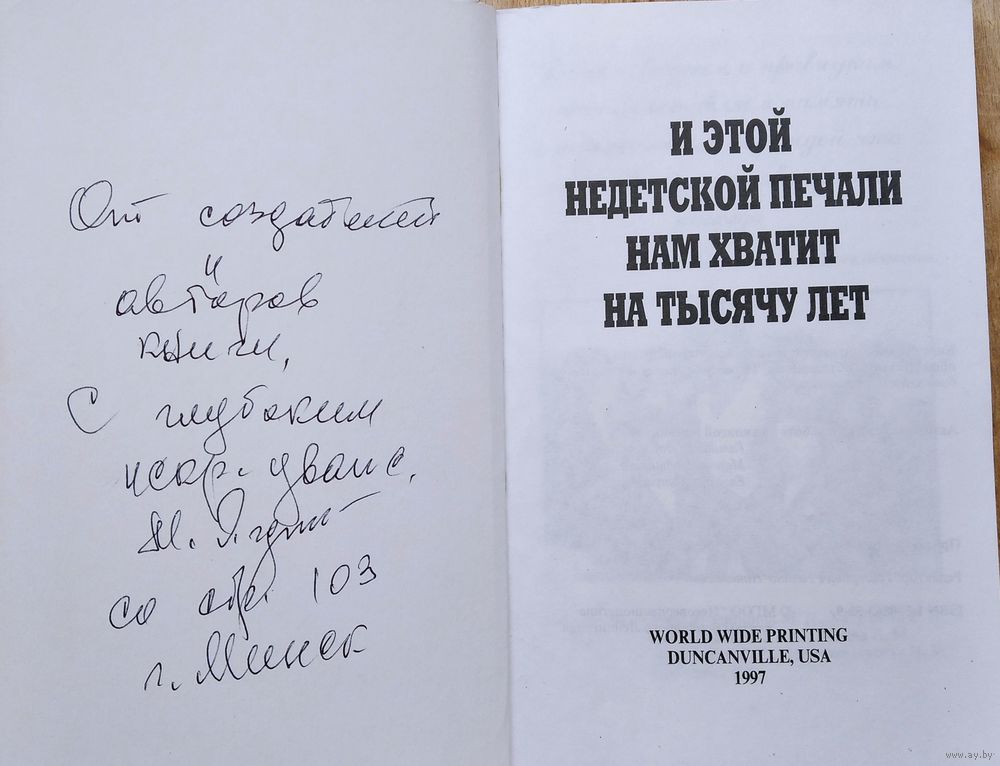 От создателей
и
авторов
книги,
С глубоким
искр. уваж.
со стр 103
г. Минск
И ЭТОЙ
НЕДЕТСКОЙ ПЕЧАЛИ
НАМ ХВАТИТ
НА ТЫСЯЧУ ЛЕТ
WORLD WIDE PRINTING
DUNCANVILLE, USA
1997
www.ay.by